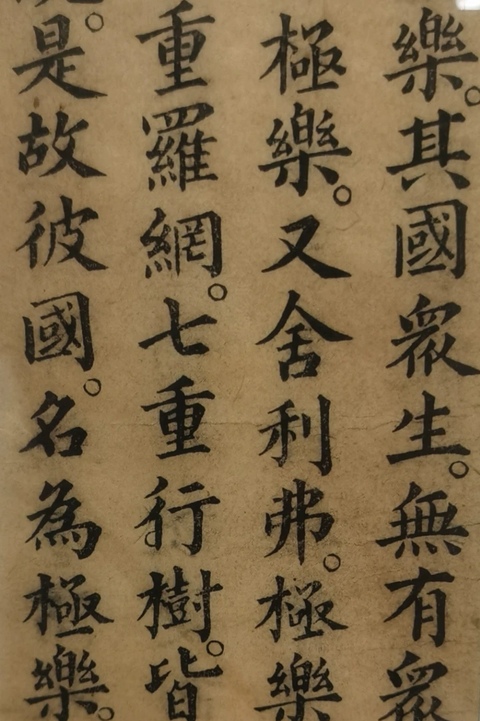 樂。其國眾生。無有眾
極樂。又舍利弗。極樂
重羅網。七重行樹。皆
是故彼國。名為極樂。